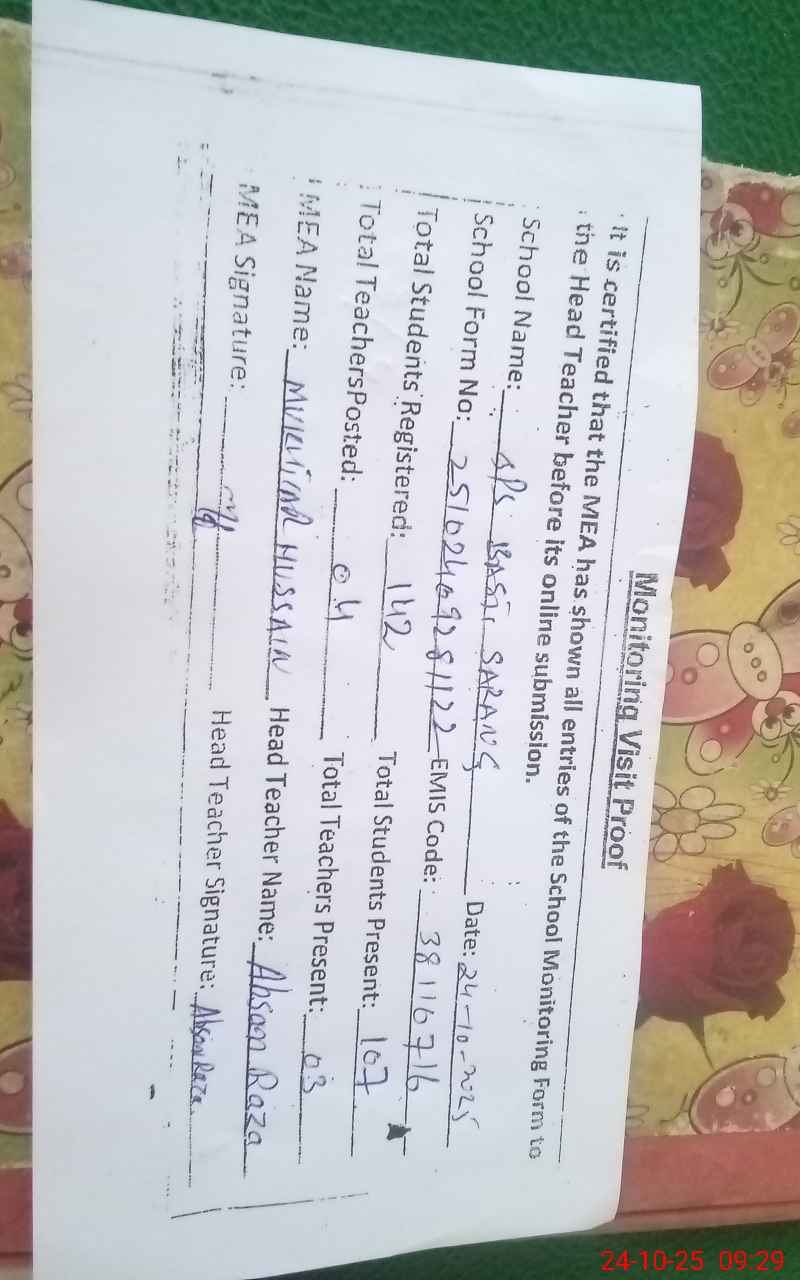 Monitoring Visit Proof
It is certified that the MEA has shown all entries of the School Monitoring Form to
the Head Teacher before its online submission.
School Name: GPS BASTI SARANG Date: 24-10-2025
School Form No: EMIS Code: 38116716
Total Students Registered: 142 Total Students Present: 107
Total TeachersPosted: 04 Total Teachers Present: 03
MEA Name: HUSSAIN Head Teacher Name: Ahsan Raza
MEA Signature: Head Teacher Signature: Ahsan Raza
24-10-25 09:29